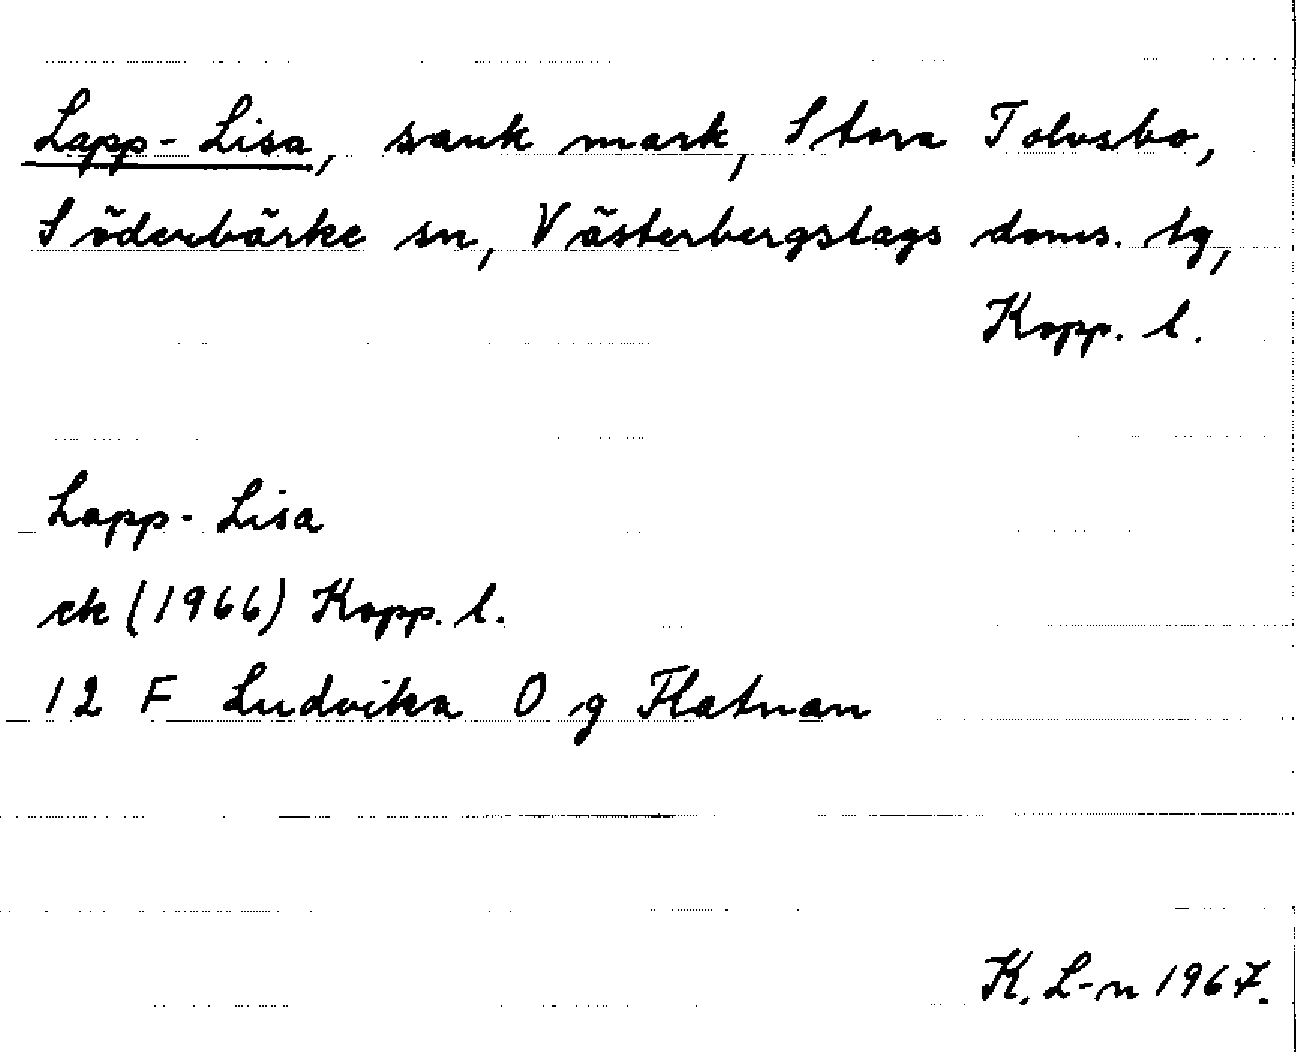 Lapp-Lisa, sank mark, Stora Tolvsbo,
Söderbärke sn, Västerbergslags doms. tg,
Kopp. l.
Lapp-Lisa
ek (1966) Kopp. l.
12 F Ludvika O g Flatnan
K. L-n 1967.